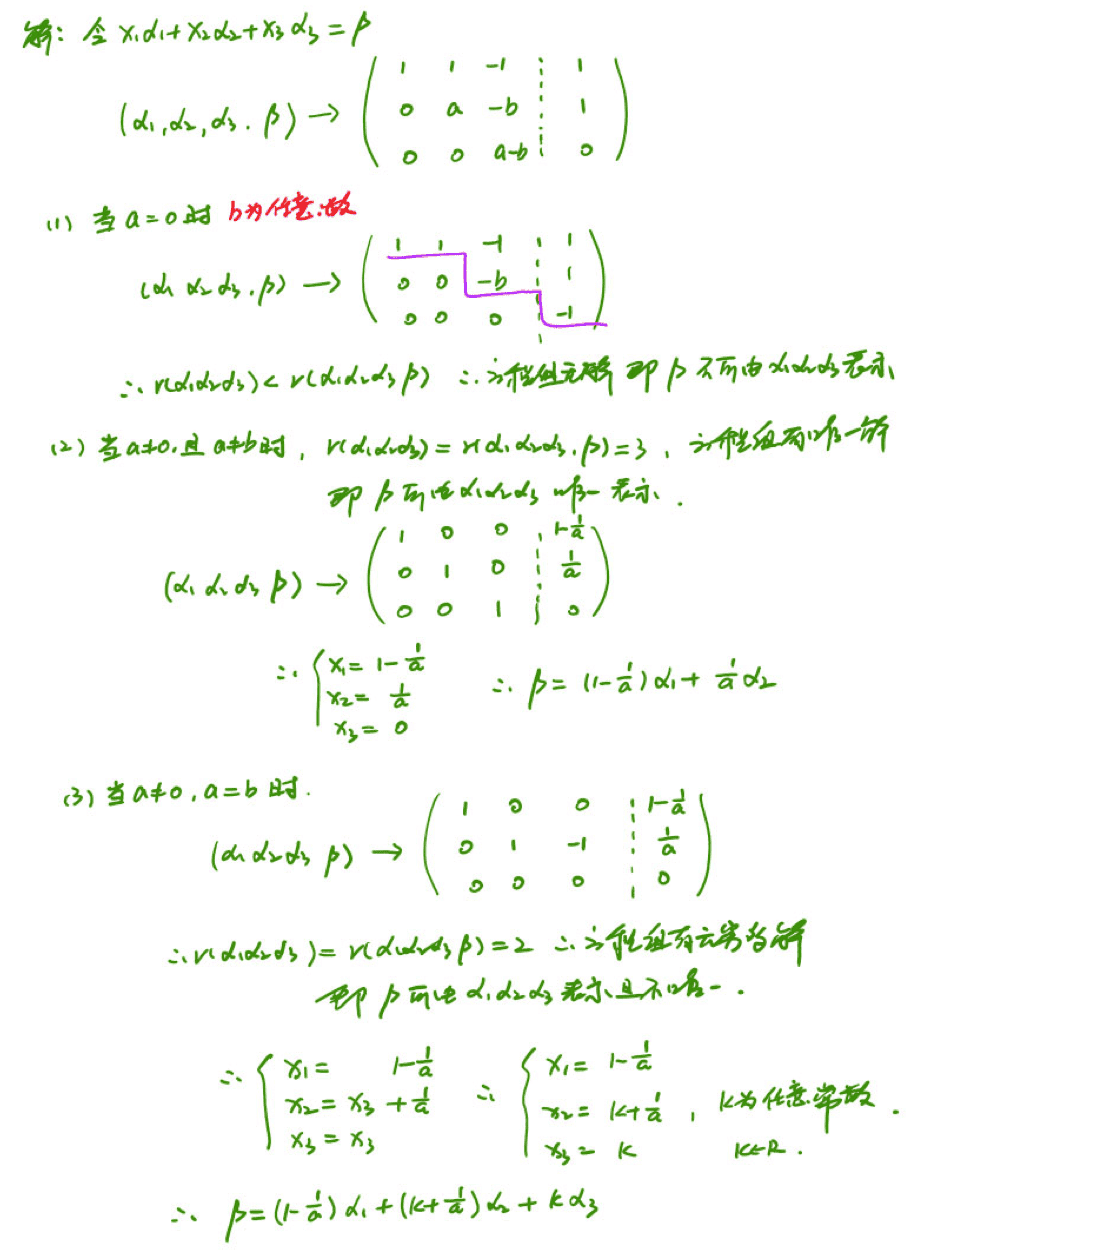 解: 令 x₁α₁+x₂α₂+x₃α₃=β
(α₁,α₂,α₃.β)→
1 1 -1 1
0 a -b 1
0 0 a-b 0
(1) 当 a=0 时 b为任意数
(α₁ α₂ α₃.β)→
1 1 -1 1
0 0 -b 1
0 0 0 -1
∴ r(α₁α₂α₃)<r(α₁α₂α₃β) ∴方程组无解 即 β 不可由 α₁α₂α₃表示
(2) 当 a≠0.且 a≠b时, r(α₁α₂α₃)=r(α₁α₂α₃.β)=3, 方程组有唯一解
即 β 可由 α₁α₂α₃ 唯一表示.
(α₁ α₂ α₃ β)→
1 0 0 1-1/a
0 1 0 1/a
0 0 1 0
∴ { x₁=1-1/a
x₂=1/a ∴ β=(1-1/a)α₁+1/a α₂
x₃=0
(3) 当 a≠0,a=b 时.
(α₁ α₂ α₃ β)→
1 0 0 1-1/a
0 1 -1 1/a
0 0 0 0
∴r(α₁α₂α₃)=r(α₁α₂α₃β)=2 ∴方程组有无穷多解
即 β 可由 α₁α₂α₃ 表示且不唯一.
∴ { x₁= 1-1/a ∴ { x₁=1-1/a
x₂=x₃+1/a x₂=k+1/a, k为任意常数.
x₃=x₃ x₃=k k∈R.
∴ β=(1-1/a)α₁+(k+1/a)α₂+kα₃